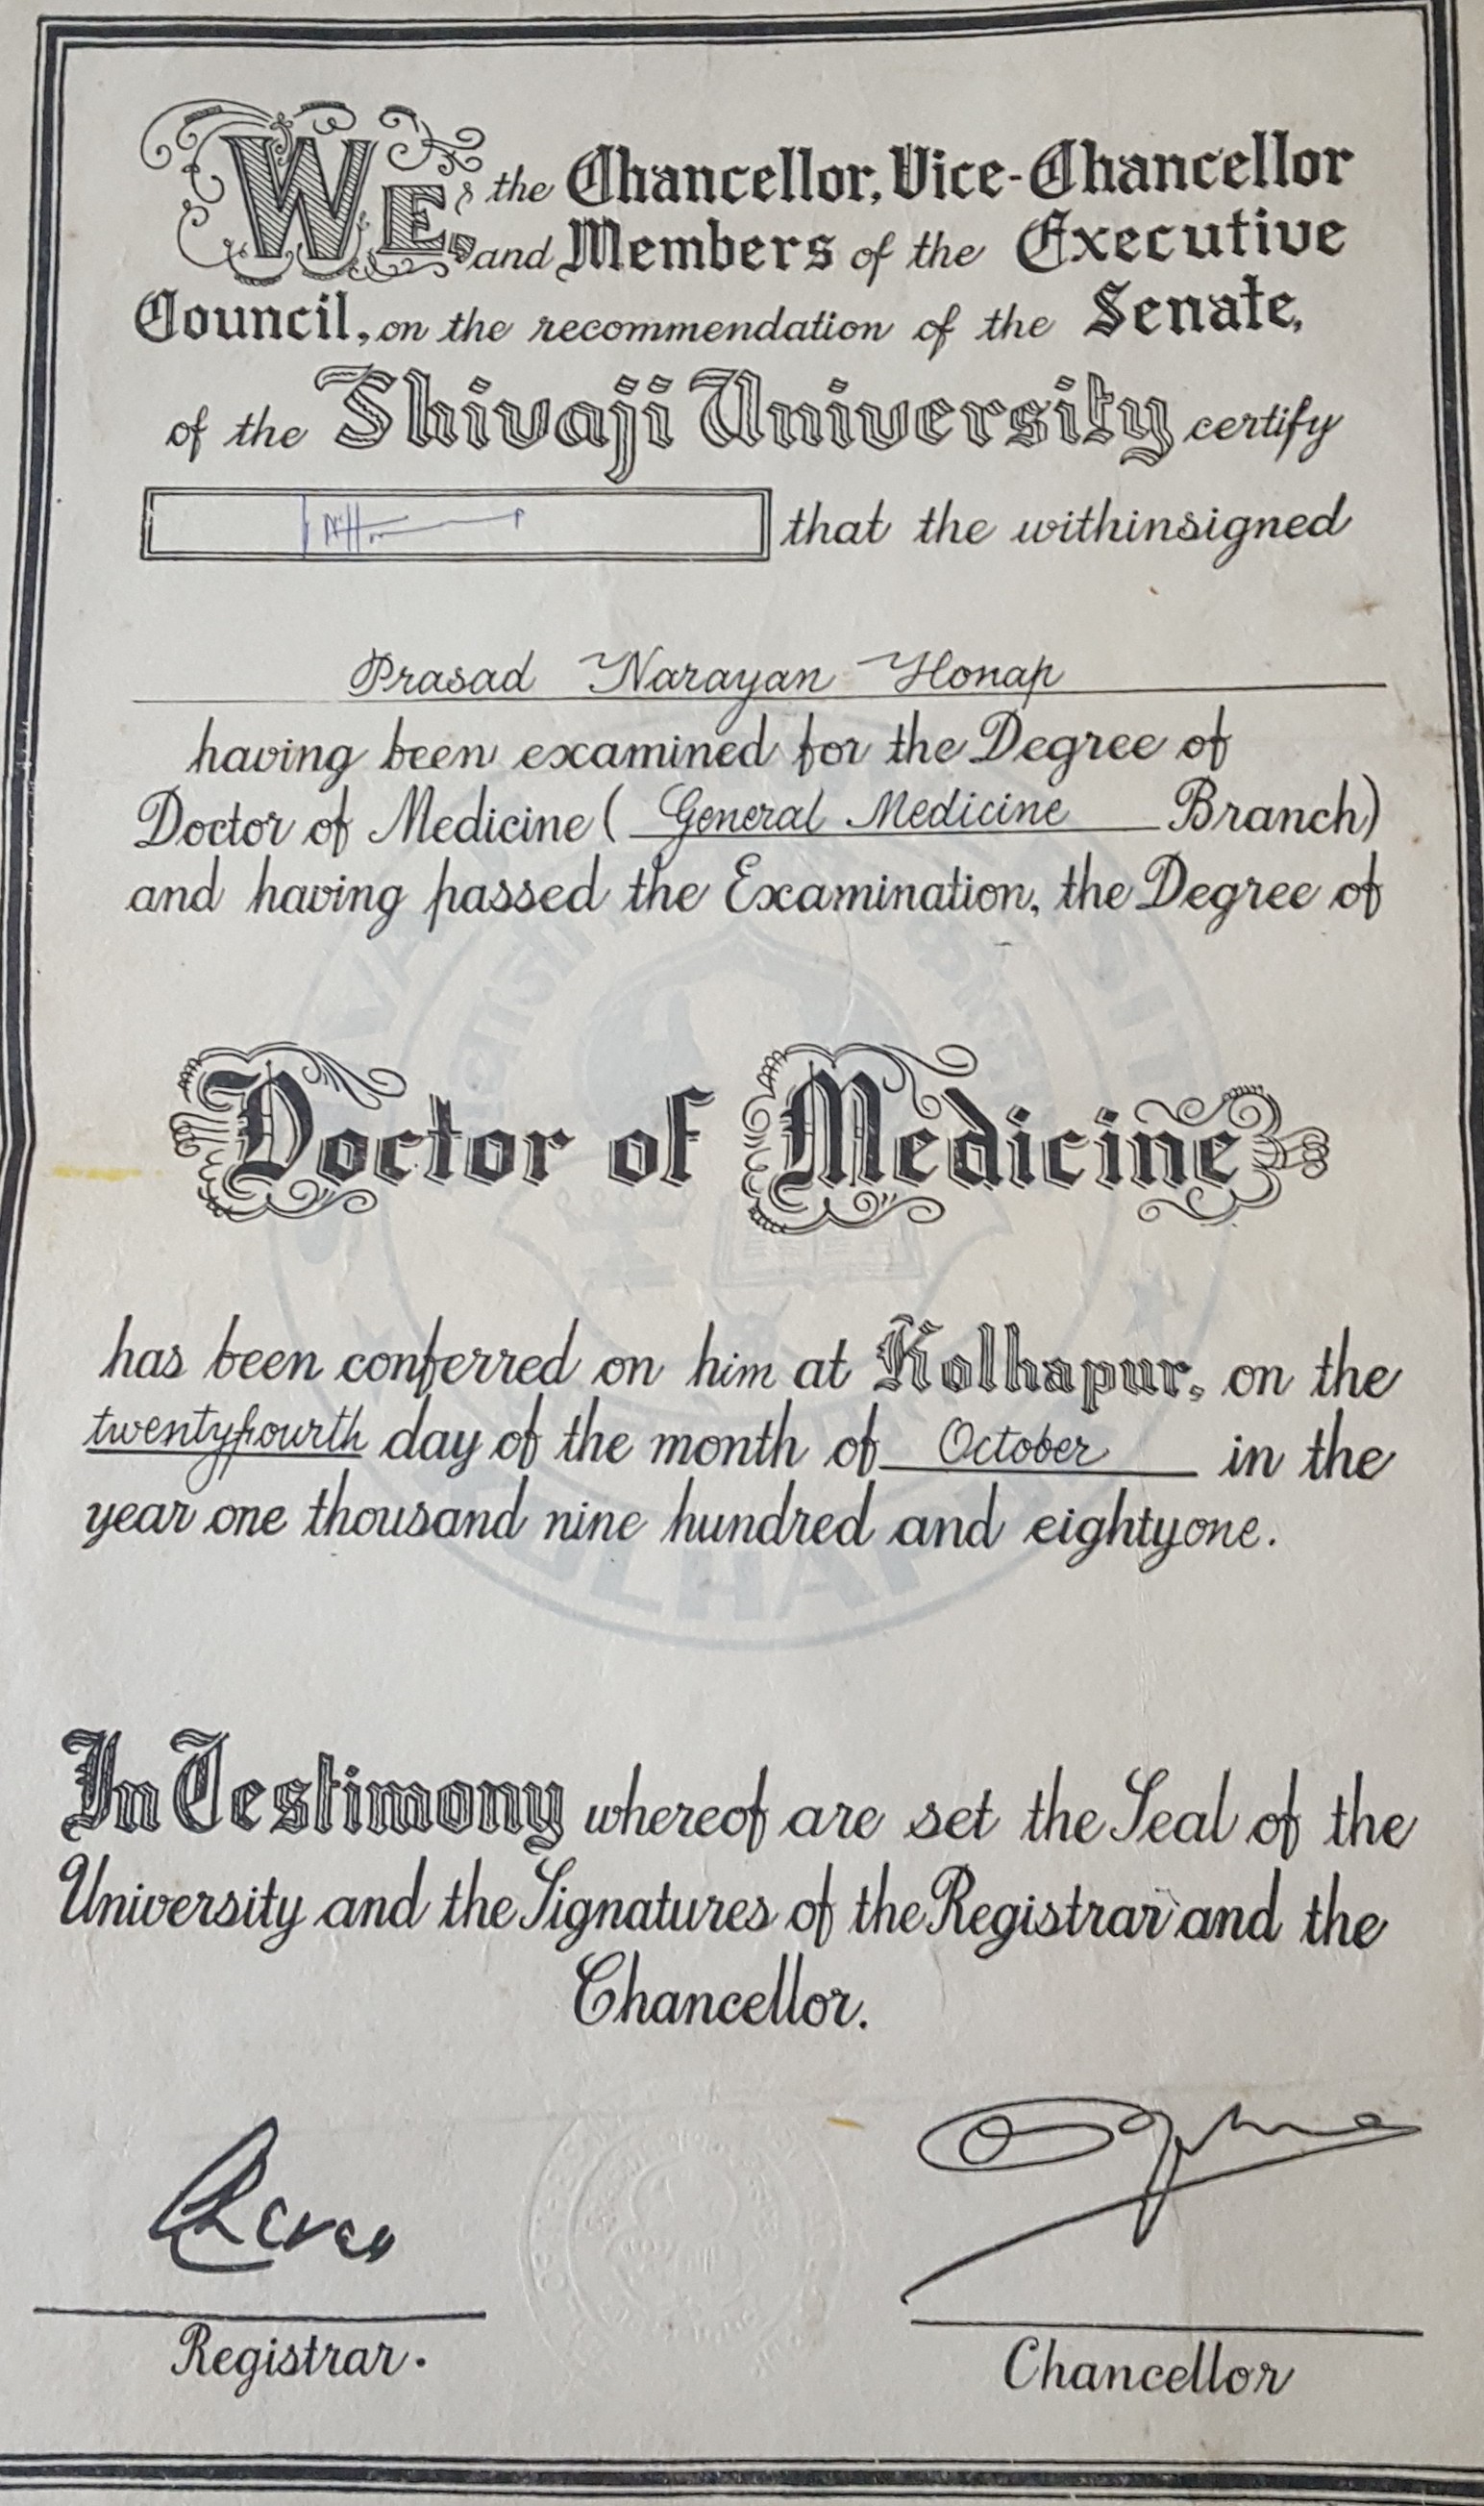 WE, the Chancellor, Vice-Chancellor
and Members of the Executive
Council, on the recommendation of the Senate,
of the Shivaji University certify
that the withinsigned
Prasad Narayan Honap
having been examined for the Degree of
Doctor of Medicine ( General Medicine Branch)
and having passed the Examination, the Degree of
Doctor of Medicine
has been conferred on him at Kolhapur, on the
twentyfourth day of the month of October in the
year one thousand nine hundred and eightyone.
In Testimony whereof are set the Seal of the
University and the Signatures of the Registrar and the
Chancellor.
Registrar.
Chancellor